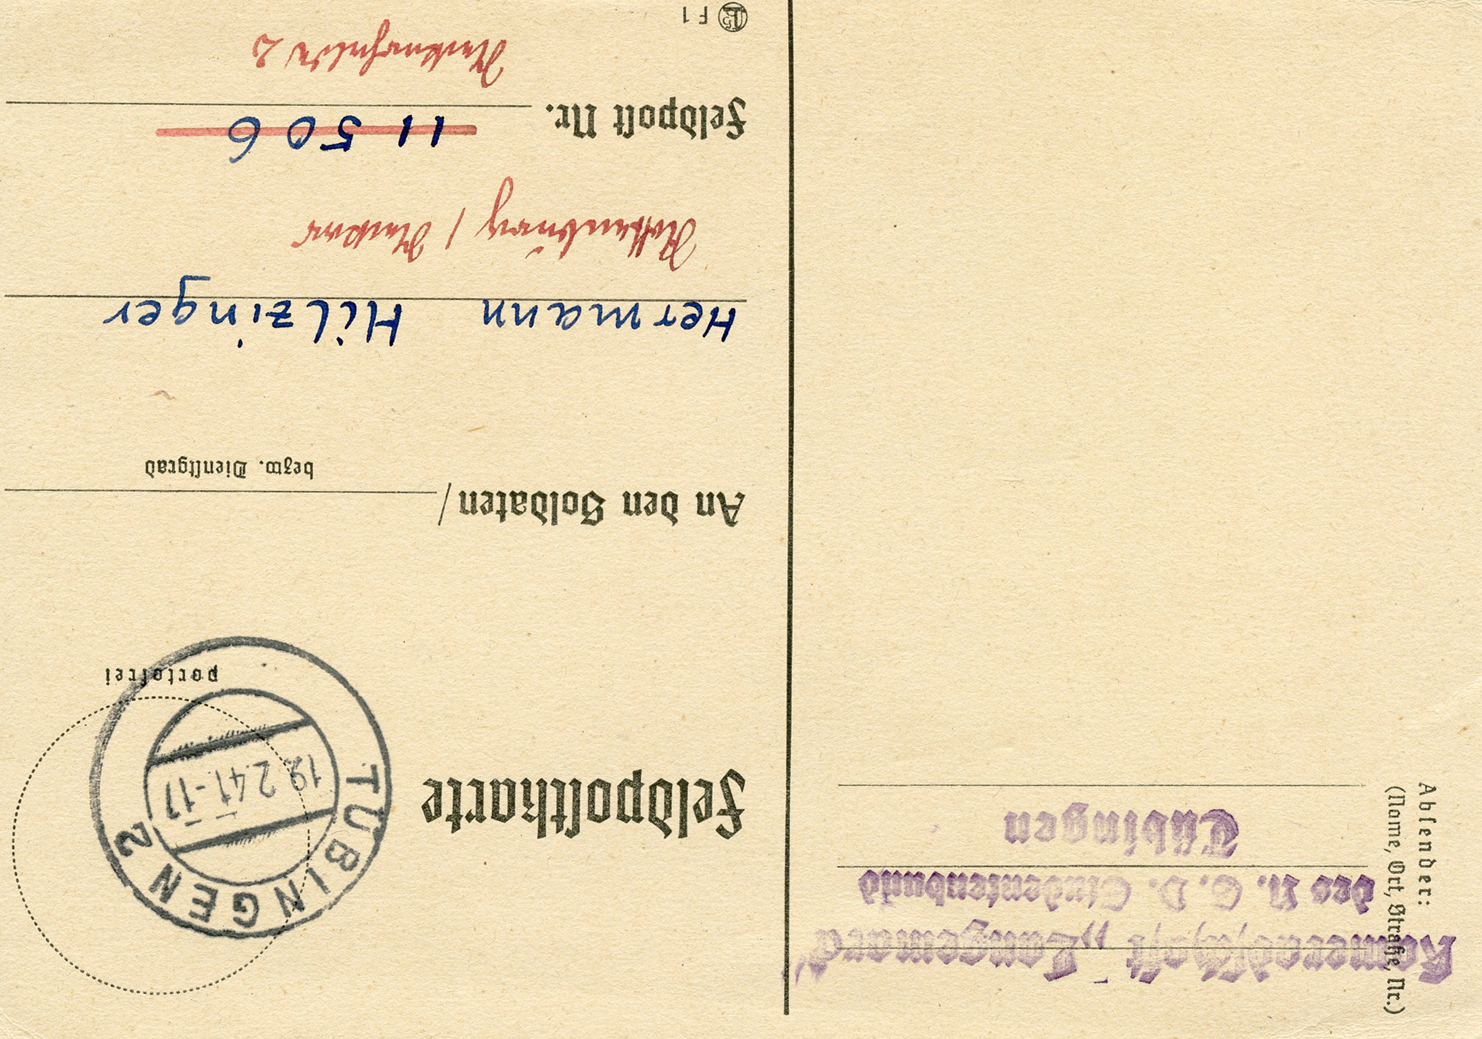 Absender:
(Name, Ort, Straße, Nr.)
Kameradschaft „Langemarck“
des N. S. D. Studentenbund
Tübingen
Feldpostkarte
portofrei
TÜBINGEN 2
19.2.41.-17
An den Soldaten/
bezw. Dienstgrad
Hermann Hilzinger
Rottenburg / Neckar
Feldpost Nr. 11 506
2
F 1